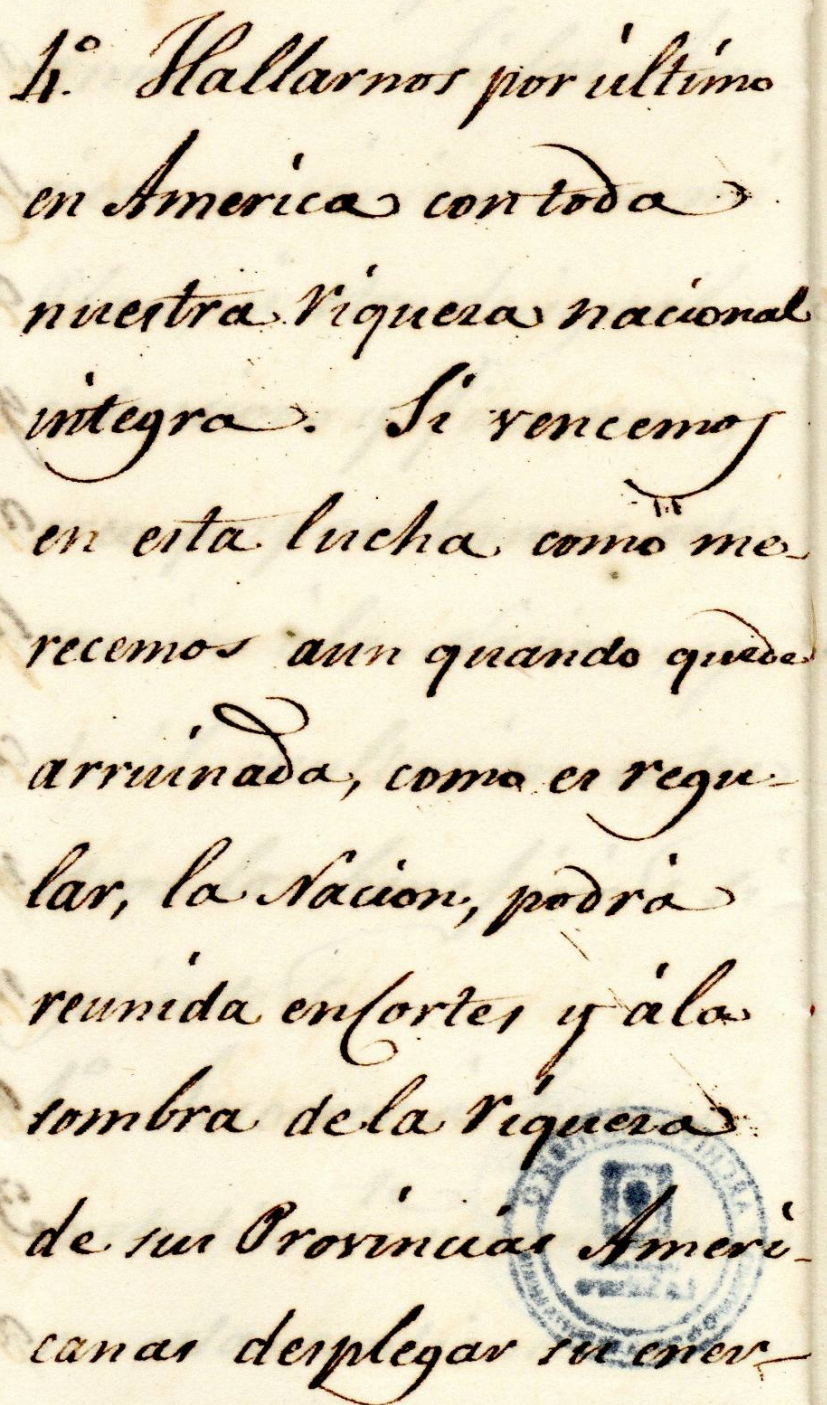 4º. Hallarnos por ùltimo
en America con toda
nuestra riqueza nacional
integra. Si vencemos
en esta lucha como me-
recemos aun quando quede
arruinada, como es regu-
lar, la Nacion, podrà
reunida en Cortes y àla
sombra dela riqueza
de sus Provincias Ameri-
canas desplegar su ener-